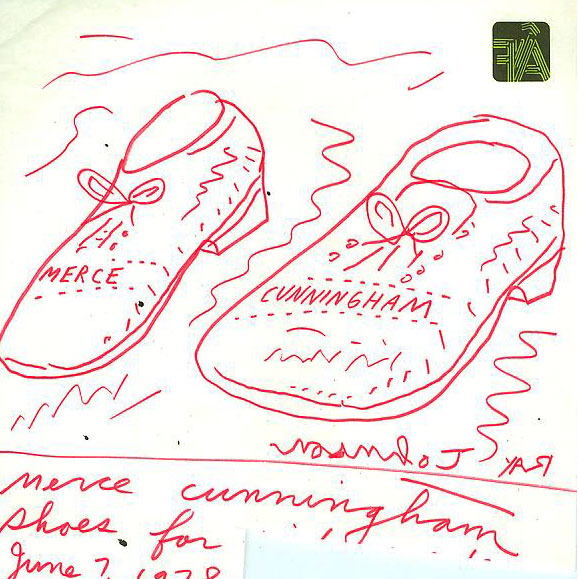 MERCE
CUNNINGHAM
RAY Johnson
merce cunningham
shoes for
June 7, 1978